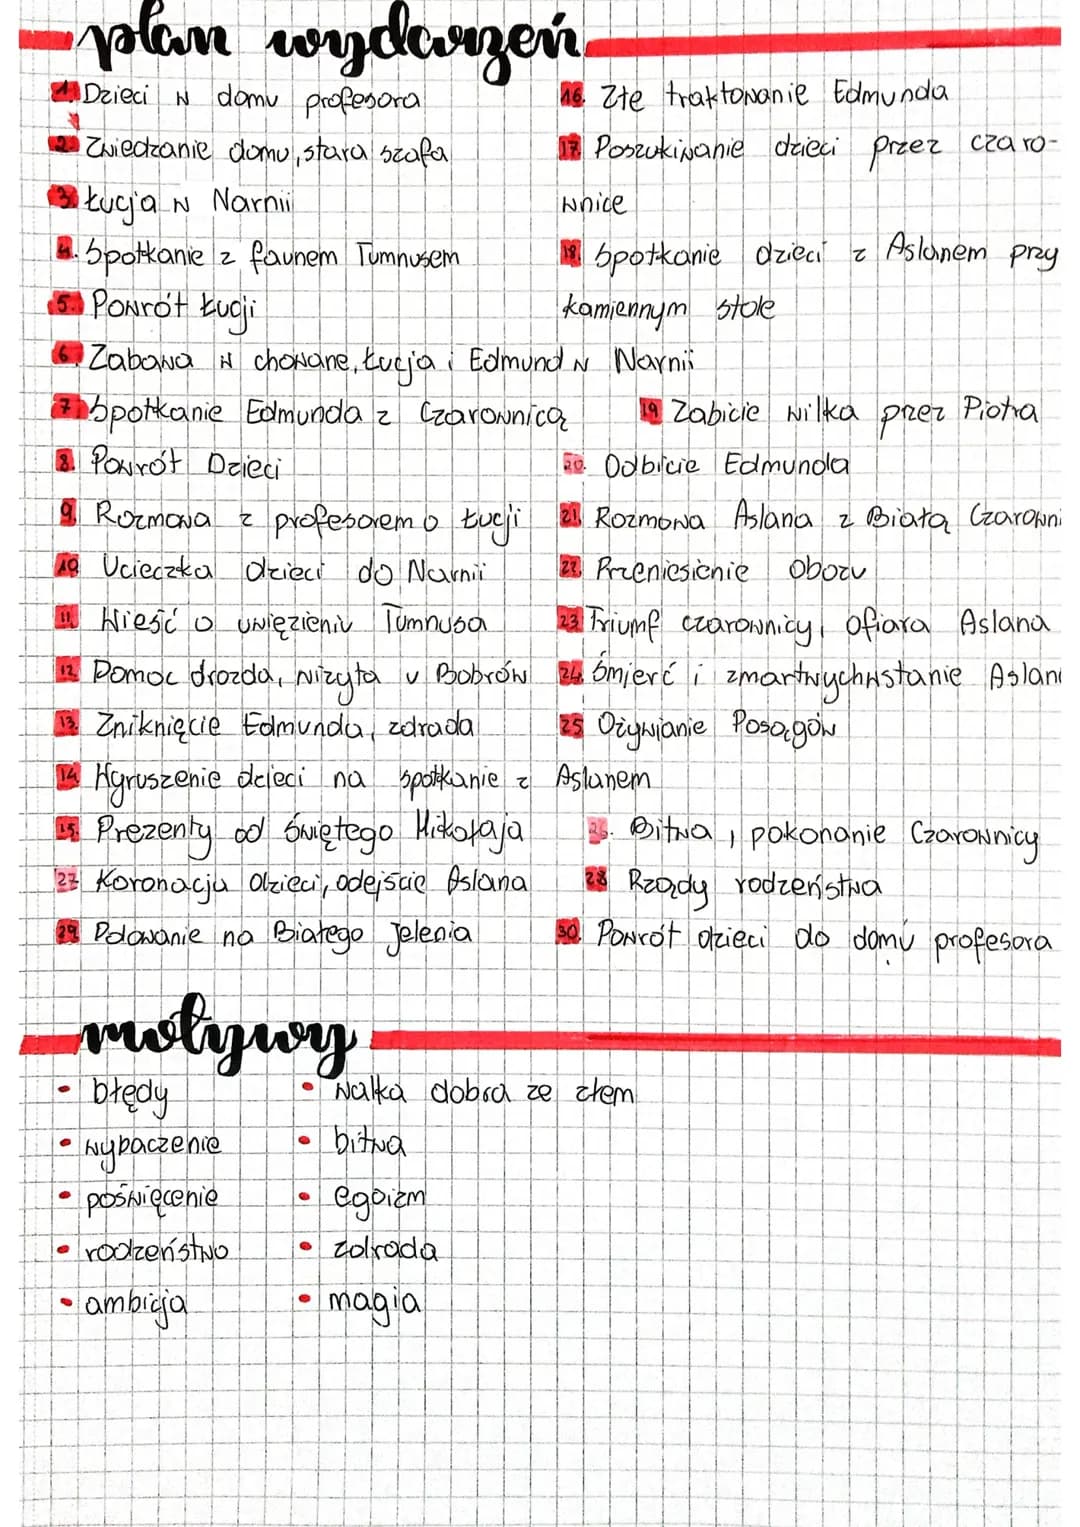 plan wydarzeń
1. Dzieci w domu profesora
2. Zwiedzanie domu, stara szafa
3. Łucja w Narnii
4. Spotkanie z faunem Tumnusem
5. Powrót Łucji
6. Zabawa w chowane, Łucja i Edmund w Narnii
7. Spotkanie Edmunda z Czarownicą
8. Powrót Dzieci
9. Rozmowa z profesorem o Łucji
10. Ucieczka dzieci do Narnii
11. Wieść o uwięzieniu Tumnusa
12. Pomoc drozda, wizyta u Bobrów
13. Zniknięcie Edmunda, zdrada
14. Wyruszenie dzieci na spotkanie z Aslanem
15. Prezenty od Świętego Mikołaja
16. Złe traktowanie Edmunda
17. Poszukiwanie dzieci przez czaro-
wnice
18. Spotkanie dzieci z Aslanem przy
kamiennym stole
19 Zabicie wilka przez Piotra
20. Odbicie Edmunda
21. Rozmowa Aslana z Białą Czarowni
22. Przeniesienie obozu
23 Triumf czarownicy, ofiara Aslana
24. Śmierć i zmartwychwstanie Aslan
25 Ożywianie Posągów
26. Bitwa, pokonanie Czarownicy
27 Koronacja dzieci, odejście Aslana
28 Rządy rodzeństwa
29 Polowanie na Białego Jelenia
30. Powrót dzieci do domu profesora
motywy
• błędy
• wybaczenie
• poświęcenie
• rodzeństwo
• ambicja
• walka dobra ze złem
• bitwa
• egoizm
• zdrada
• magia